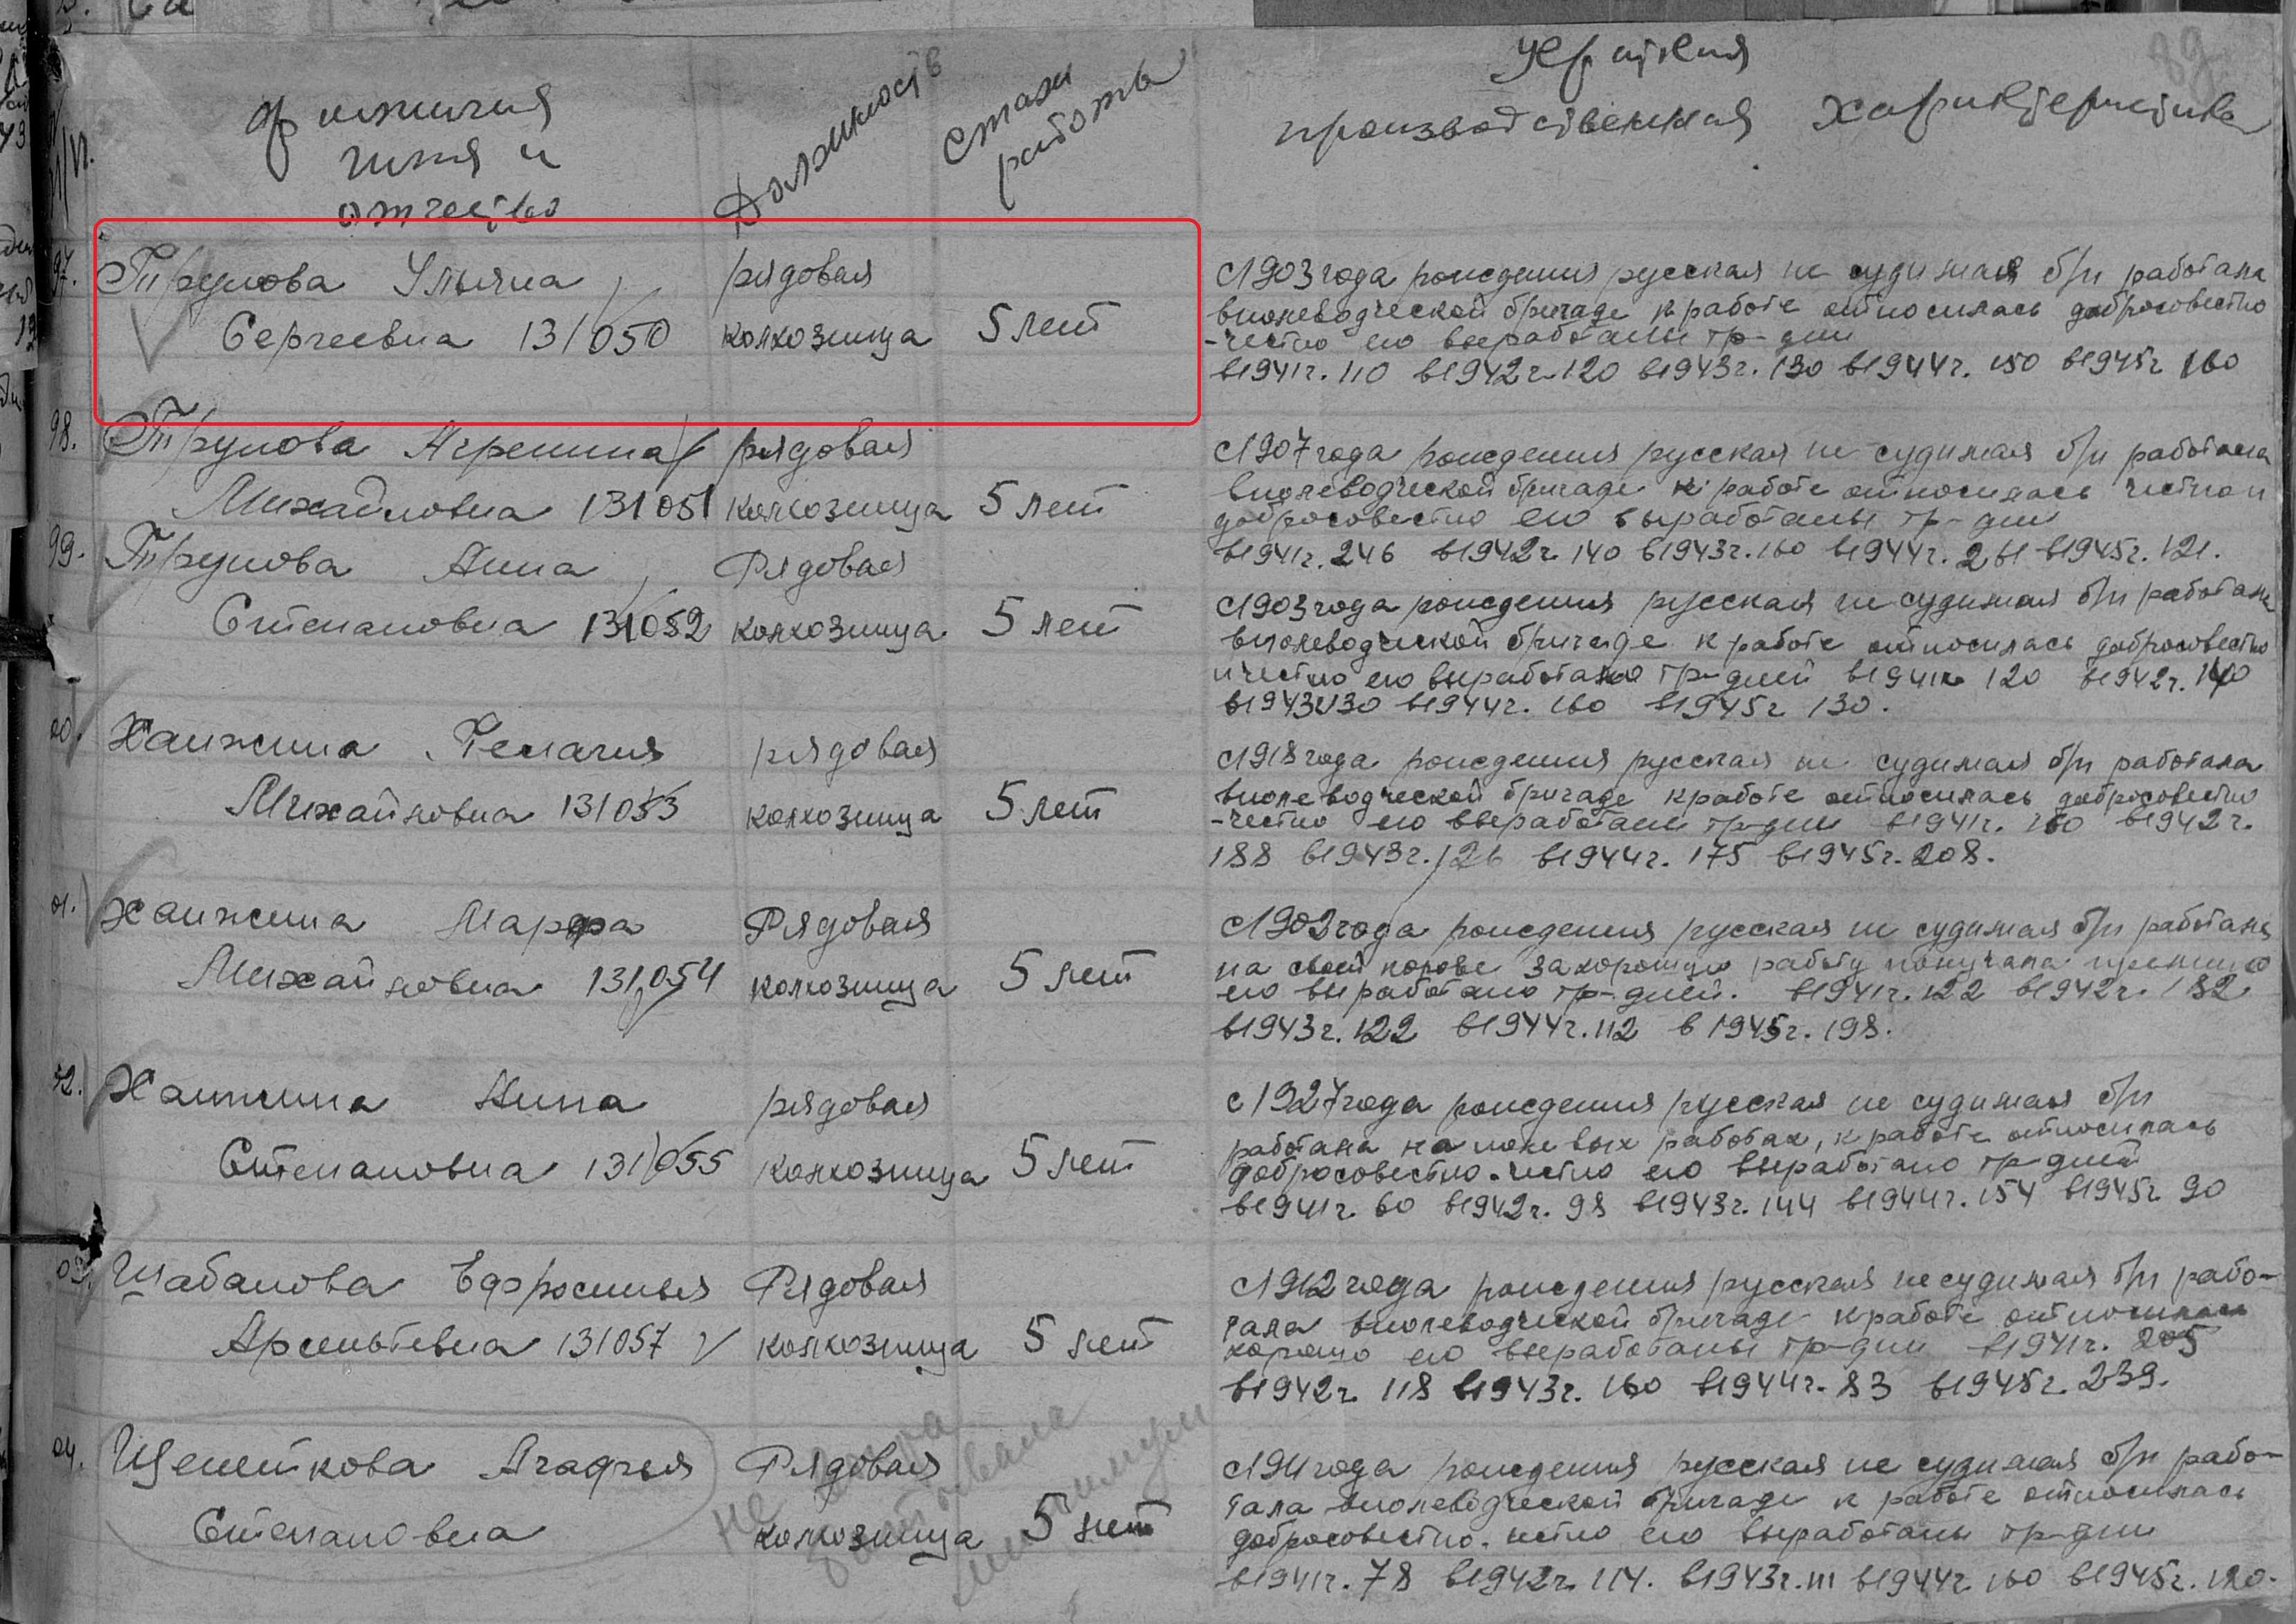 89
Краткая
производственная характеристика
фамилия
имя и
отчество
Должность
стаж
работы
97. Трунова Ульяна рядовая
Сергеевна 131050 колхозница 5 лет
с 1903 года рождения русская не судимая б/п работала
в полеводческой бригаде к работе относилась добросовестно
-честно ею выработаны тр-дни
в 1941г. 110 в 1942г. 120 в 1943г. 130 в 1944г. 150 в 1945г 160
98. Трунова Агрепина рядовая
Михайловна 131051 колхозница 5 лет
с 1907 года рождения русская не судимая б/п работала
в полеводческой бригаде к работе относилась честно и
добросовестно ею выработаны тр-дни
в 1941г. 246 в 1942г. 140 в 1943г. 160 в 1944г. 261 в 1945г. 121.
99. Трунова Анна Рядовая
Степановна 131052 колхозница 5 лет
с 1903 года рождения русская не судимая б/п работала
в полеводческой бригаде к работе относилась добросовестно
и честно ею выработано тр-дней в 1941г 120 в 1942г. 140
в 1943г 130 в 1944г. 160 в 1945г 130.
00. Ханжина Пелагия рядовая
Михайловна 131053 колхозница 5 лет
с 1918 года рождения русская не судимая б/п работала
в полеводческой бригаде к работе относилась добросовестно
-честно ею выработаны тр-дни в 1941г. 160 в 1942г.
188 в 1943г. 126 в 1944г. 175 в 1945г. 208.
01. Ханжина Марфа Рядовая
Михайловна 131054 колхозница 5 лет
с 1902 года рождения русская не судимая б/п работала
на своей корове за хорошую работу получала премию
ею выработано тр-дней. в 1941г. 122 в 1942г. 182.
в 1943г. 122 в 1944г. 112 в 1945г. 198.
02. Ханжина Нина рядовая
Степановна 131055 колхозница 5 лет
с 1927 года рождения русская не судимая б/п
работала на полевых работах, к работе относилась
добросовестно-честно ею выработано тр-дней
в 1941г. 60 в 1942г. 98 в 1943г. 144 в 1944г. 154 в 1945г 90
03. Шабанова Ефросинья Рядовая
Арсентьевна 131057 колхозница 5 лет
с 1912 года рождения русская не судимая б/п рабо-
тала в полеводческой бригаде к работе относилась
хорошо ею выработаны тр-дни в 1941г. 205
в 1942г. 118 в 1943г. 160 в 1944г. 83 в 1945г. 239.
04. Щепеткова Агафья Рядовая
Степановна колхозница 5 лет
не
минимум
с 1911 года рождения русская не судимая б/п рабо-
тала в полеводческой бригаде к работе относилась
добросовестно-честно ею выработаны тр-дни
в 1941г. 78 в 1942г. 114. в 1943г. 111 в 1944г 160 в 1945г. 120.